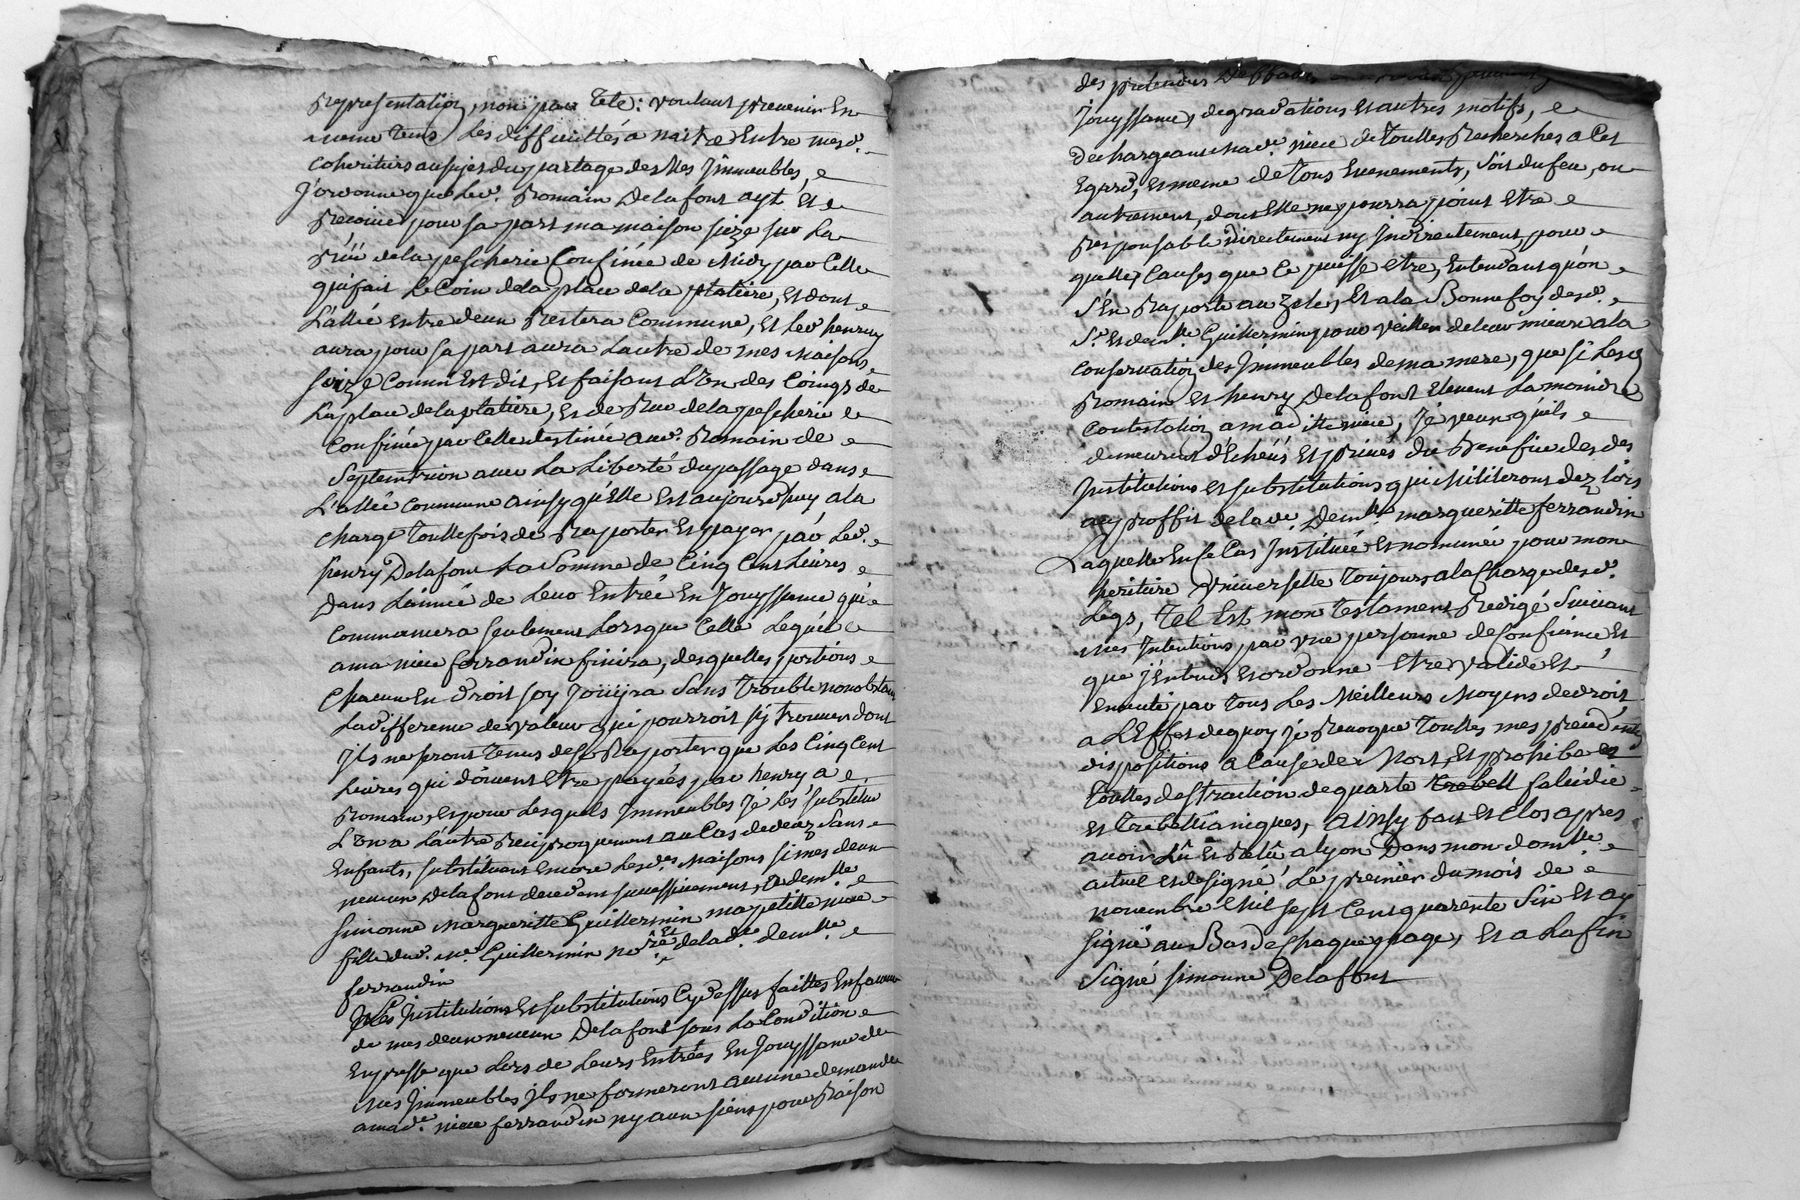 Representation, non par Tete : voulant prevenir En
meme Tems Les difficultés a naitre Entre mesd.
Coheritiers au sujet du partage desdites Immeubles,
J'ordonne que Led. Romain Delafont ayt Et
Reçoive pour sa part ma maison sizze sur La
Rüe de la pescherie Confinée de Midy par Celle
qui fait Le Coin de la place de la platiere, Et dont
L'allée Entre deux Restera Commune, Et Led henry
aura pour sa part aura Lautre de mes Maisons
sizze Comm'Est dit, Et faisant L'un des Coings de
La place de la platiere, Et de Rue de la pescherie
Confinée par Celle destinée aud. Romain de
Septentrion avec La Liberté du passage dans
L'allée Commune ainsy qu'Elle Est aujourd'huy a la
charge Touttefois de Raporter Et payer par Led.
henry Delafont La Somme de Cinq Cent Livres
dans L'année de Leur Entrée En Jouyssance qui
Commancera seulement Lorsque Celle Leguée
a ma niece ferrandin finira, desquelles portions
Chacun En droit soy Joüyra sans Trouble nonobstant
La difference de valeur qui pourroit s'y trouver dont
Ils ne seront Tenus de se Raporter que Les Cinq Cent
Livres qui doivent Etre payées par henry a
Romain, Et pour Lesquels Immeubles Je Les substitue
L'un a Lautre Reciproquement au Cas de decez Sans
Enfants, substituant Encore Lesdes Maisons si mes deux
neveux Delafont decedent successivement, a demlle
Simonne Margueritte Guillermin ma petitte niece
fille dud. Me. Guillermin nore Et de lade. demlle
ferrandin
Les Institutions Et substitutions Cy dessus faittes En faveur
de mes deux neveux Delafont sous La Condition
Expresse que Lors de Leurs Entrées En Jouyssance de
mes Immeubles Ils ne formeront aucune demande
a mad. niece ferrandin ny aux siens pour Raison
des pretendus
Jouyssance, degradations Et autres motifs,
dechargeant mad. niece de Touttes Recherches a Cet
Egard, Et meme de Tous Evenements, soit du feu, ou
autrement, dont Elle ne pourra point Etre
Responsable directement ny Indirectement, pour
quelle Cause que Ce puisse Etre, Entendant qu'on
s'En Raporte au Zele, Et a la Bonne foy desd.
Sr. Et demlle Guillermin pour veiller de leur mieux a la
Conservation des Immeubles de ma mere, que si Lesd
Romain Et henry Delafont Elevent La moindre
Contestation a madite niece, Je veux qu'ils
demeurent déchéus Et privés du Benefice desdes
Institutions Et substitutions qui Militeront dez lors
au proffit de lade. Demlle margueritte ferrandin
Laquelle En Ce Cas J'instituée Et nommée pour mon
heritiere Universelle Toujours a la Charge desd.
Legs, Tel Est mon Testament Redigé Suivant
mes Intentions par une personne de Confiance, Et
que j'Entend Et ordonne Etre valide Et
Executé par Tous Les Meilleurs Moyens de droit,
a L'Effet de quoy Je Revoque Touttes mes precedentes
dispositions a Cause de Mort, Et prohibe
Touttes destraction de quarte trebell falcidie
Et trebellianiques, ainsy fait Et Clos apres
avoir Lû Et Relû a Lyon dans mon domlle
actuel Et designé, Le premier du mois de
novembre Mil sept Cent quarente Six Et ay
signé au Bas de Chaque page, Et a La fin
Signé Simonne Delafont